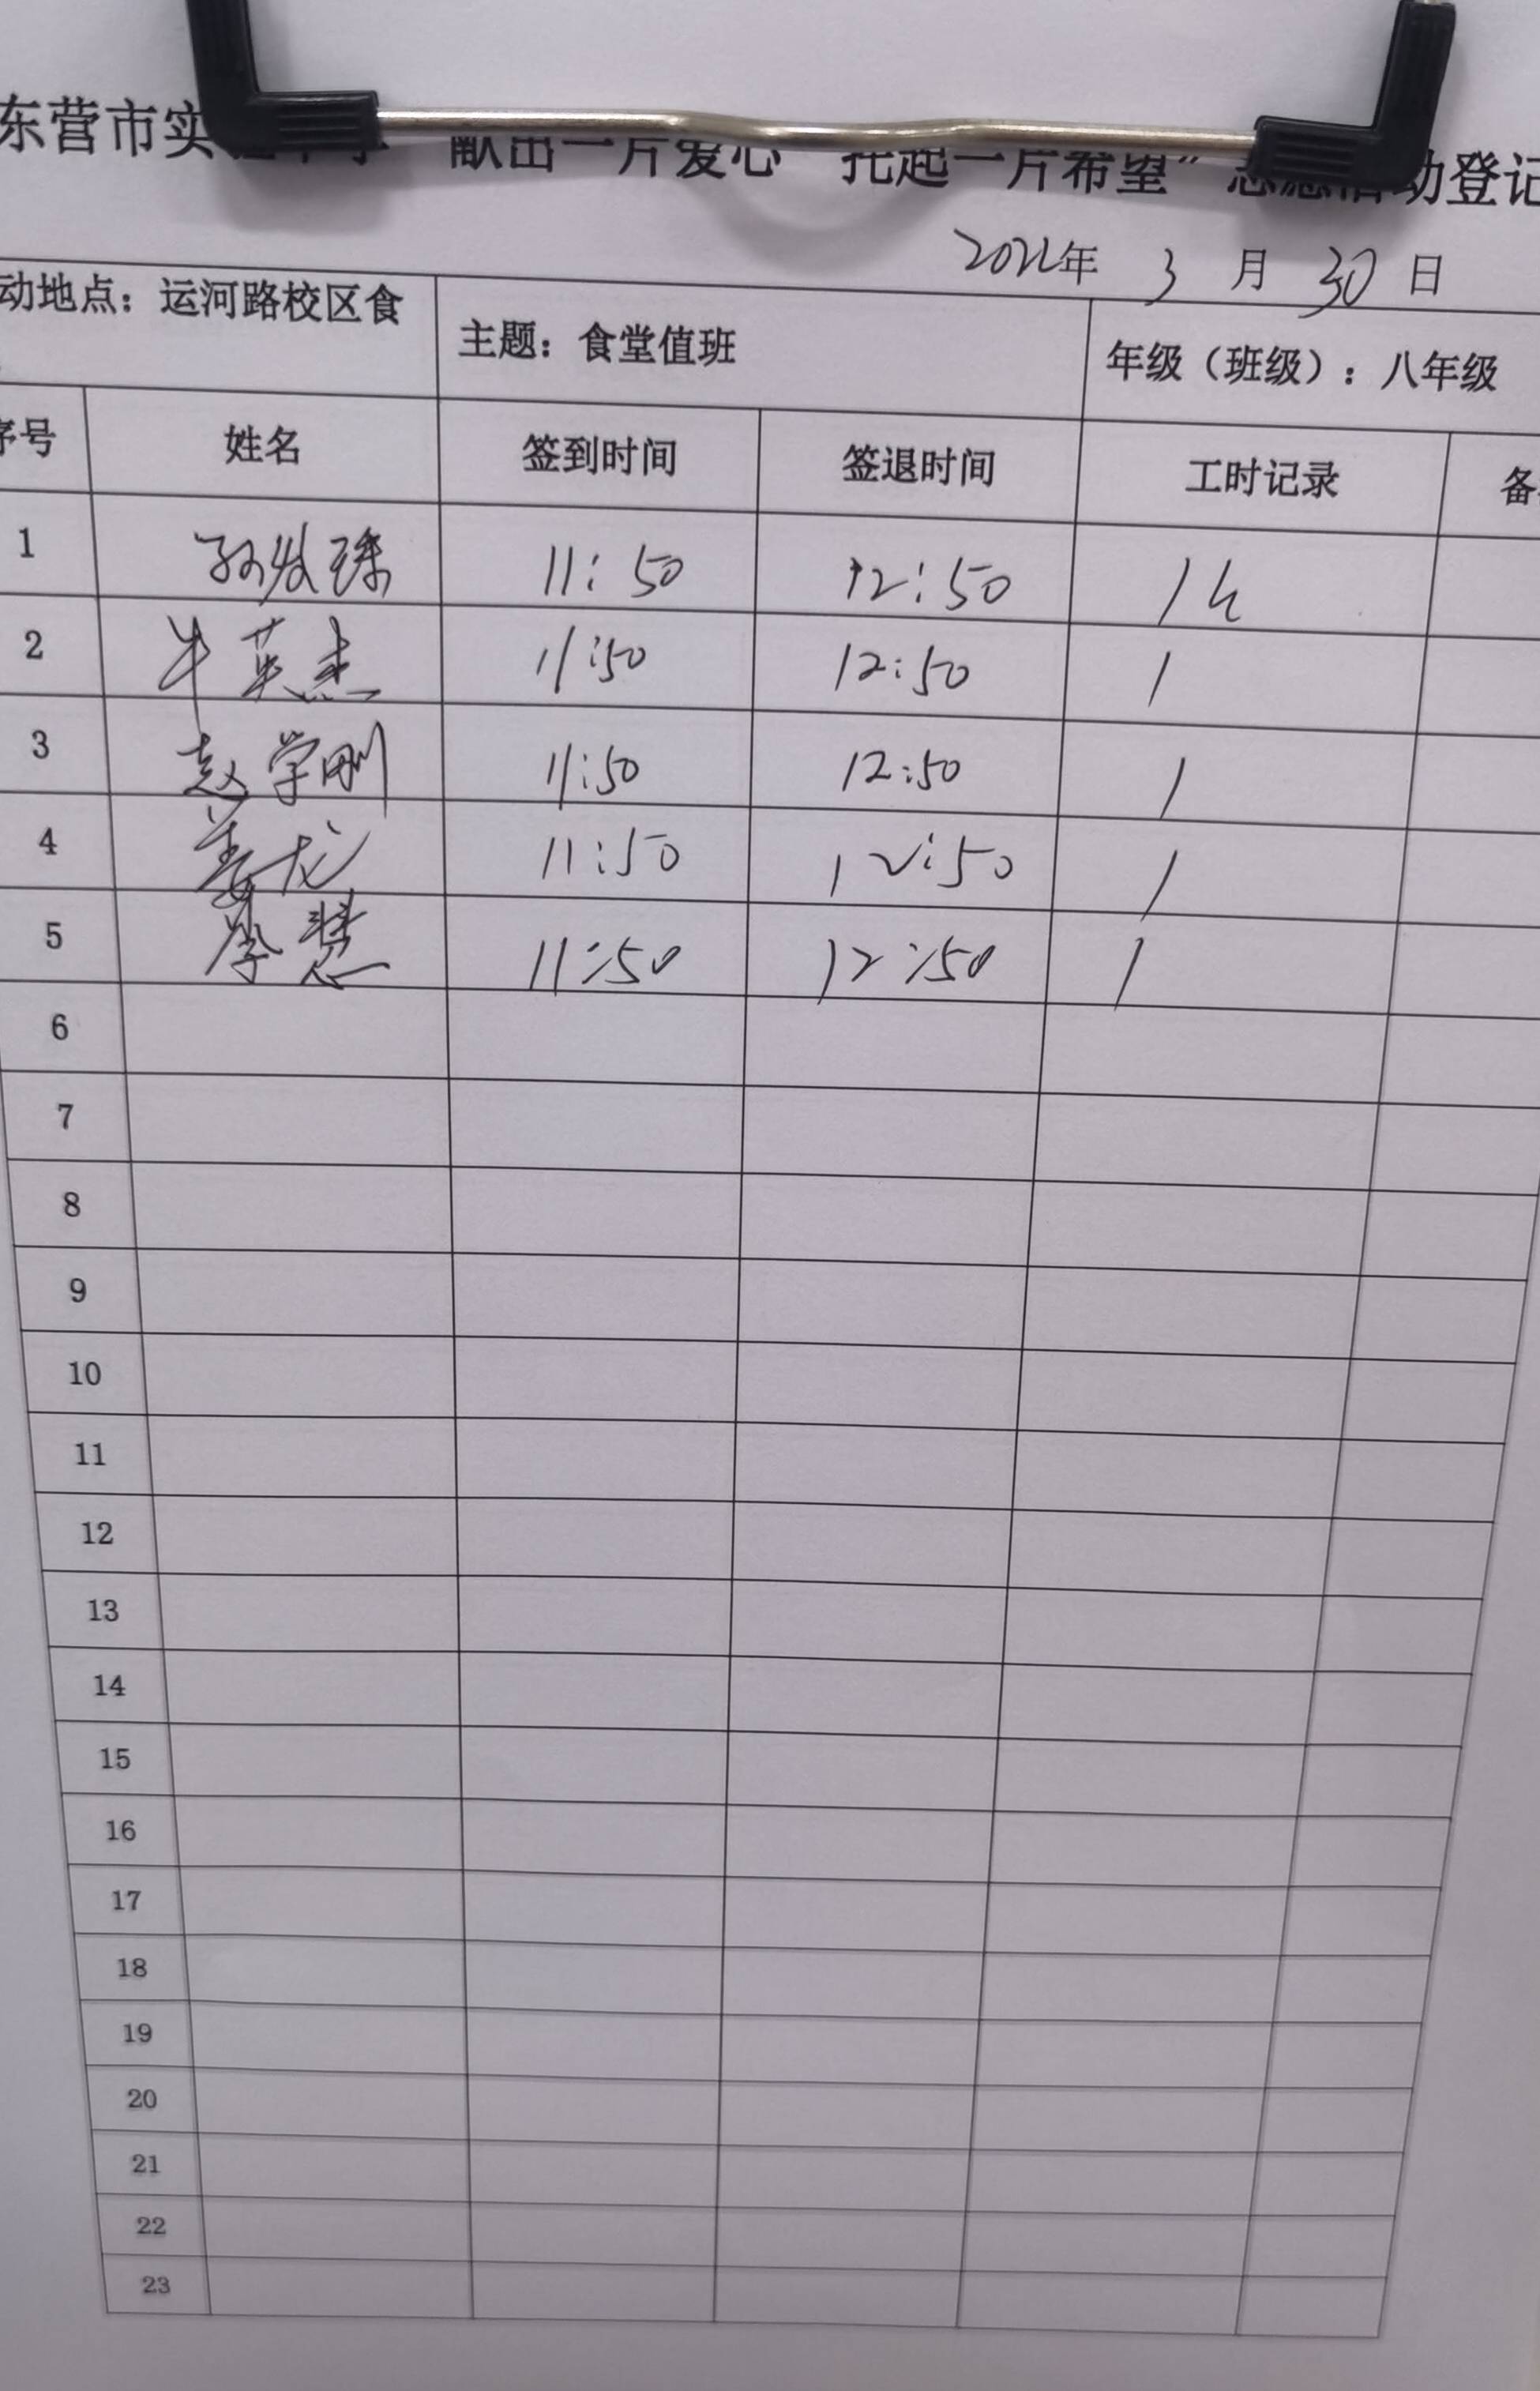 东营市实 献出一片爱心 托起一片希望”志愿活动登记
年 3 月 30 日
动地点：运河路校区食 主题：食堂值班 年级（班级）：八年级
序号 姓名 签到时间 签退时间 工时记录 备
1 11:50 12:50 1h
2 牛英杰 11:50 12:50 1
3 赵学刚 11:50 12:50 1
4 姜龙 11:50 12:50 1
5 李慧 11:50 12:50 1
6
7
8
9
10
11
12
13
14
15
16
17
18
19
20
21
22
23